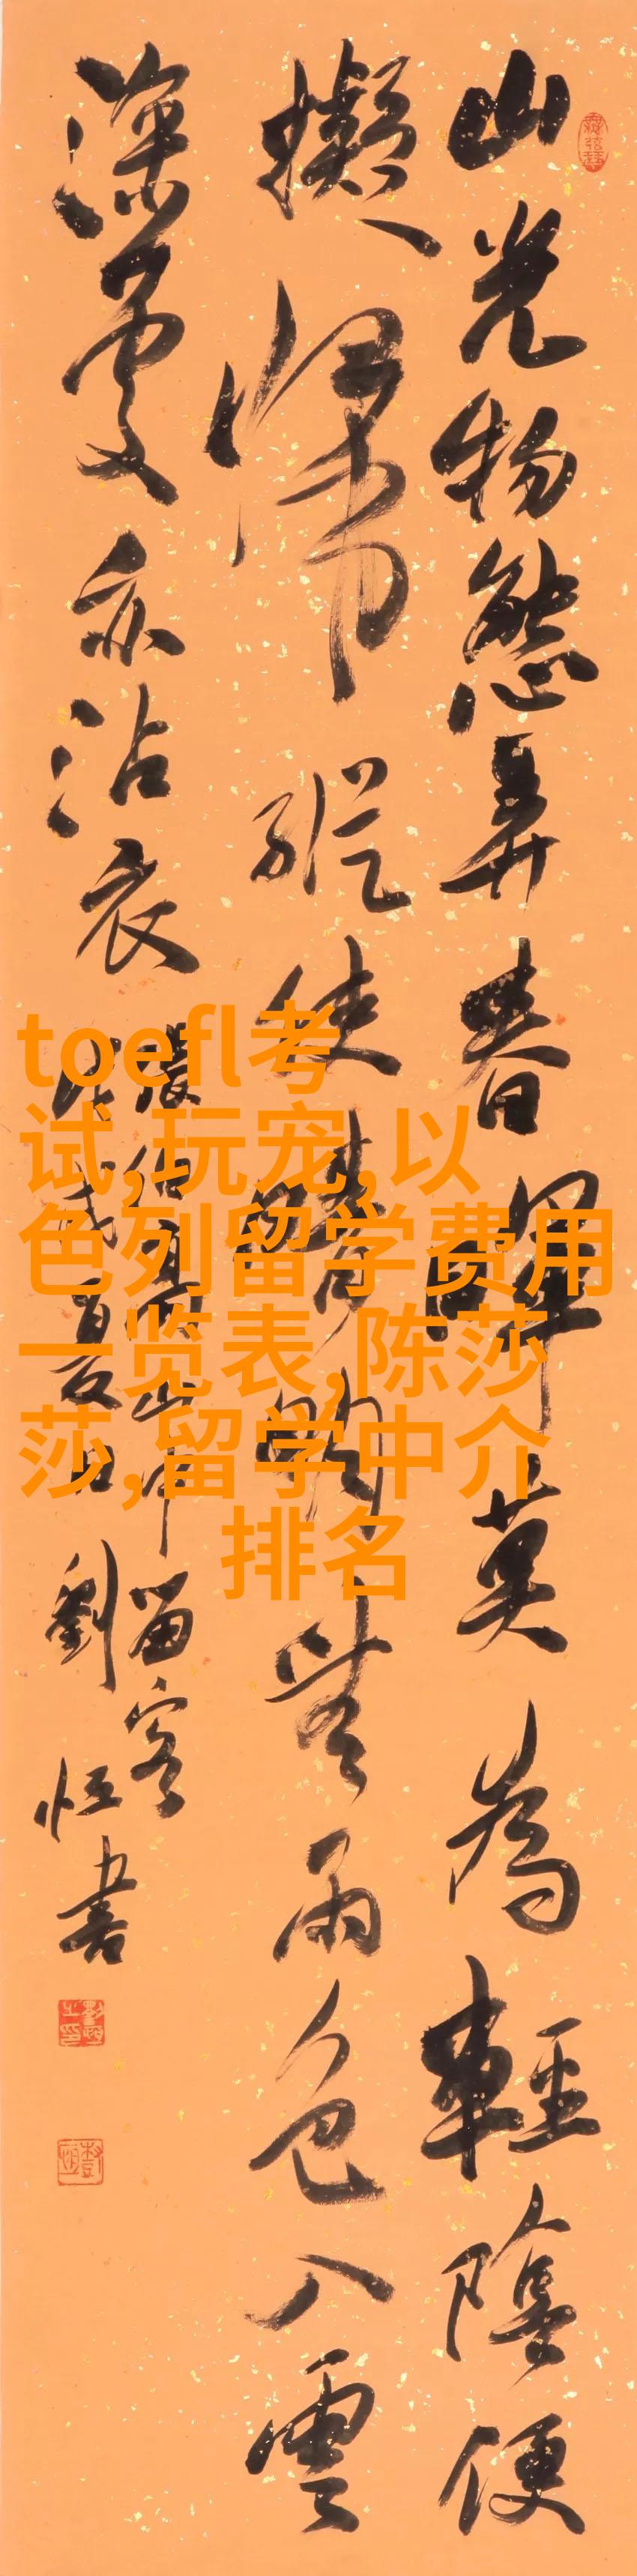 山光物態弄春暉莫為輕陰便
擬歸縱使晴明無雨色入雲
深處亦沾衣
張伯高山中留客
戊戌夏日劉恒書
toefl考
试,玩宠,以
色列留学费用
一览表,陈莎
莎,留学中介
排名